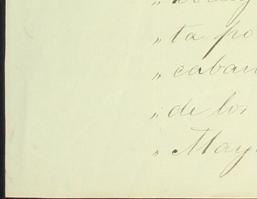 „ ta po
„ caban
„ de los
„ May